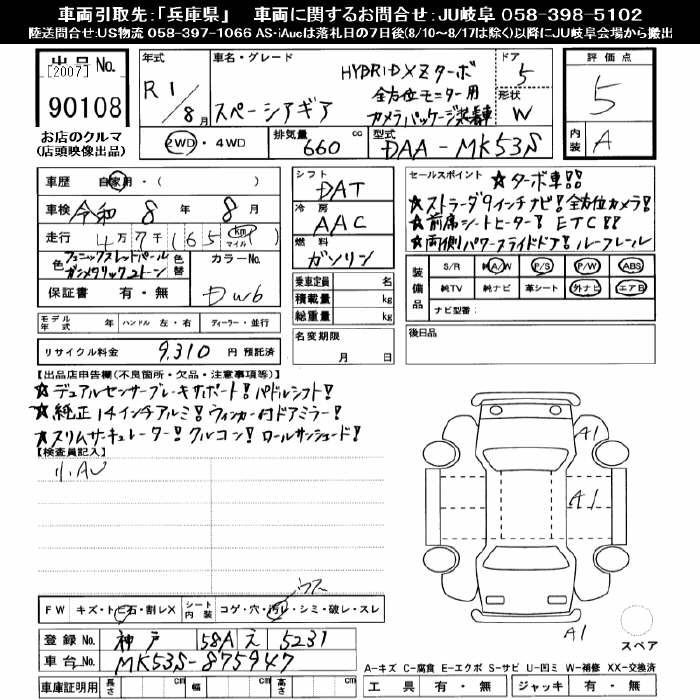 車両引取先:「兵庫県」　車両に関するお問合せ:JU岐阜 058-398-5102
陸送問合せ:US物流 058-397-1066 AS・iAucは落札日の7日後(8/10~8/17は除く)以降にJU岐阜会場から搬出
出品No. [2007]
90108
お店のクルマ
(店頭映像出品)
年式 R1/8月
車名・グレード スペーシアギア
HYBRID XZターボ
全方位モニター用
カメラパッケージ装着車
ドア 5
形状 W
評価点 5
内装 A
2WD・4WD
排気量 660 cc
型式 DAA-MK53S
車歴 自家用・( )
車検 令和 8年 8月
走行 4万7千(165 km マイル)
色 フェニックスレッドパール
ガンメタリック2トーン
色替
カラーNo. DW6
保証書 有・無
モデル年式 年 ハンドル 左・右 ディーラー・並行
リサイクル料金 9,310 円 預託済
シフト DAT
冷房 AAC
燃料 ガソリン
乗車定員 名
積載量 kg
総重量 kg
名変期限 月 日
セールスポイント ☆ターボ車!!
☆ストラーダ9インチナビ!全方位カメラ!
☆前席シートヒーター! ETC!!
☆両側パワースライドドア! ルーフレール
装備品 S/R 純A/W P/S P/W ABS
純TV 純ナビ 革シート 外ナビ エアB
ナビ型番:
後日品
【出品店申告欄(不良箇所・欠品・注意事項等)】
☆デュアルセンサーブレーキサポート! パドルシフト!
☆純正14インチアルミ! ウィンカー付ドアミラー!
☆スリムサーキュレーター! クルコン! ロールサンシェード!
【検査員記入】
A1
A1
A1
FW キズ・トビ石・割レX シート内装 コゲ・穴・汚レ・シミ・破レ・スレ
ウス
登録No. 神戸 581A え 5231
車台No. MK53S-875947
車庫証明用 長さ cm 幅 cm 高さ cm
スペア
A-キズ C-腐食 E-エクボ S-サビ U-凹ミ W-補修 XX-交換済
工具 有・無 ジャッキ 有・無